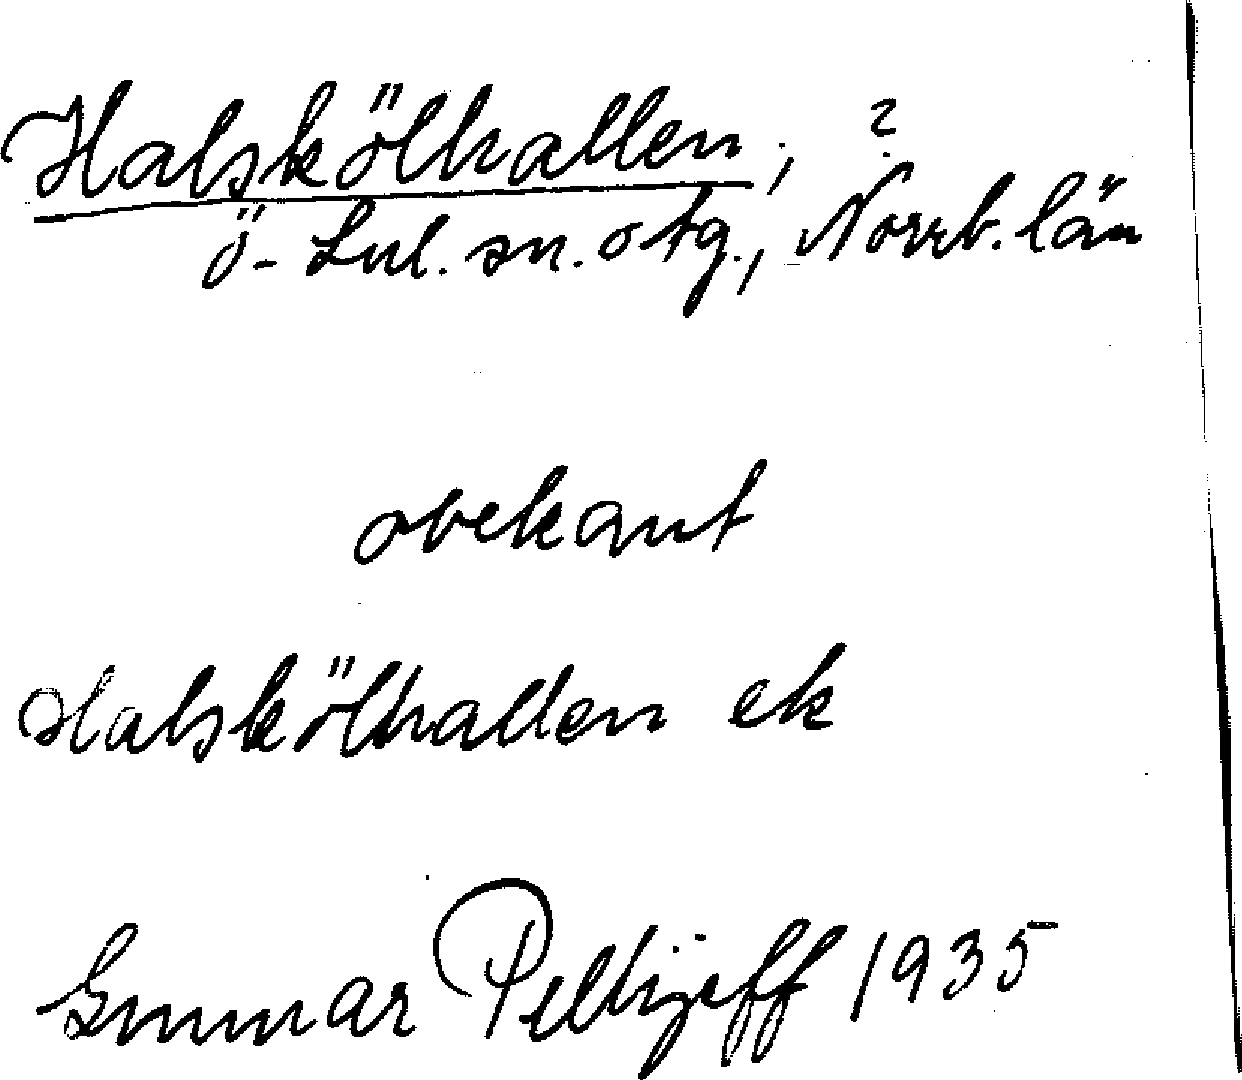 Halskölhallen, ?
Ö-Lul. sn. o tg., Norrb. län
obekant
Halskölhallen ek
Gunnar Pellijeff 1935